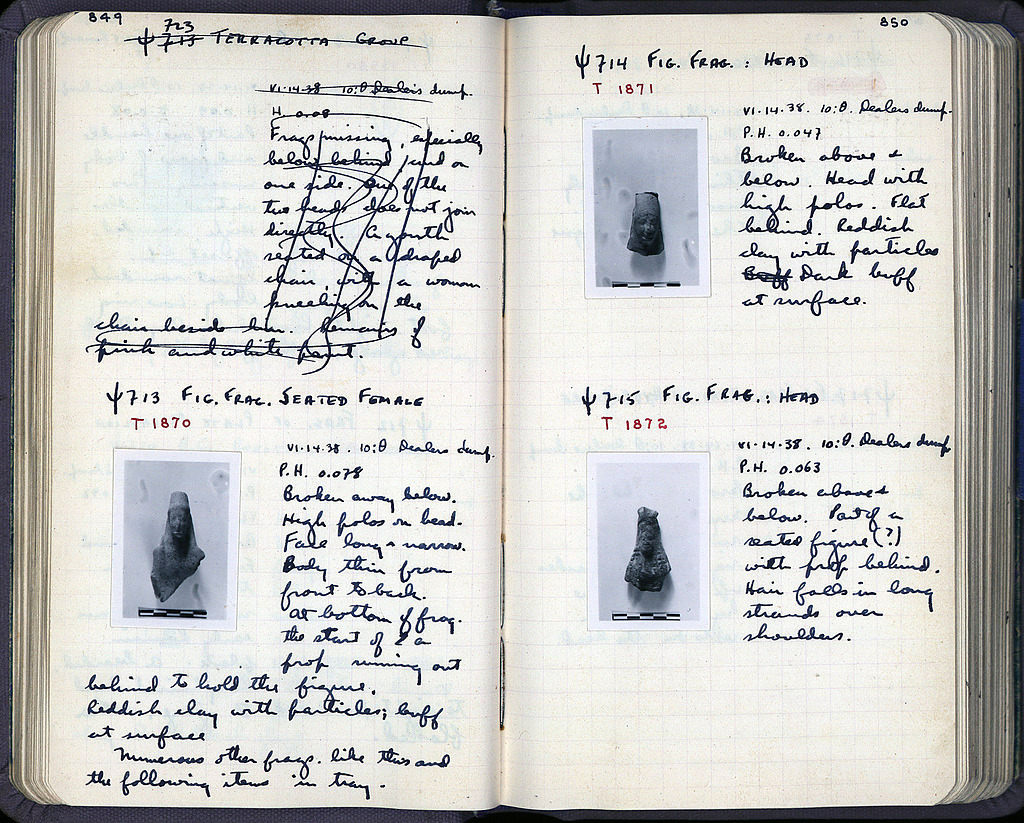 849
723
ψ 713 TERRACOTTA GROUP
VI·14·38 10:Θ Dealers dump.
H. 0.08
Frags missing, especially
below behind and on
one side. One of the
two heads does not join
directly. A youth
seated on a draped
chair, with a woman
kneeling on the
chair beside him. Remains of
pink and white paint.
ψ713 FIG. FRAG. SEATED FEMALE
T 1870
VI·14·38. 10:Θ Dealers dump.
P.H. 0.078
Broken away below.
High polos on head.
Face long & narrow.
Body thin from
front to back.
At bottom of frag.
the start of a
prop running out
behind to hold the figure.
Reddish clay with particles; buff
at surface
Numerous other frags. like this and
the following items in tray.
850
ψ714 FIG. FRAG.: HEAD
T 1871
VI·14·38. 10:Θ. Dealers dump.
P.H. 0.047
Broken above &
below. Head with
high polos. Flat
behind. Reddish
clay with particles
Buff Dark buff
at surface.
ψ715 FIG. FRAG.: HEAD
T 1872
VI·14·38. 10:Θ. Dealers dump
P.H. 0.063
Broken above &
below. Part of a
seated figure (?)
with prop behind.
Hair falls in long
strands over
shoulders.